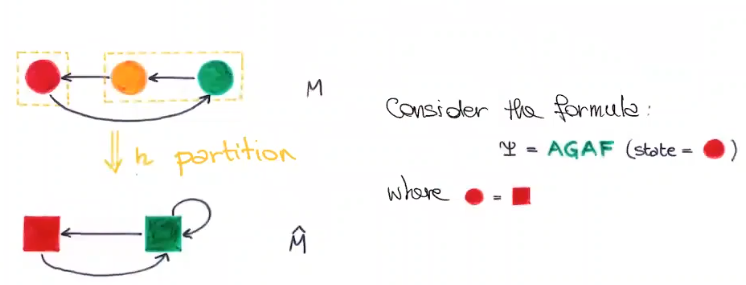 M
h partition
M̂
Consider the formula:
Ψ = AGAF (state = 🔴)
where 🔴 = 🟥